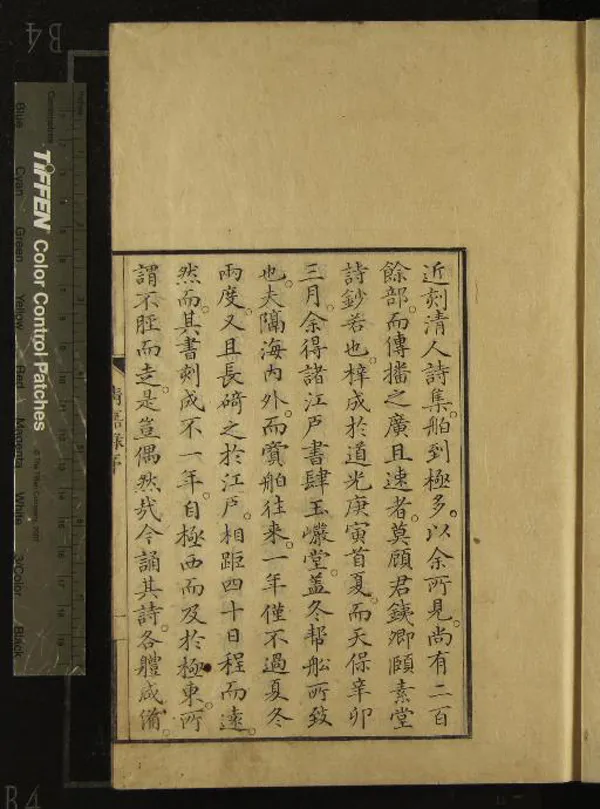 近刻清人詩集。舶到極多。以余所見。尚有二百
餘部。而傳播之廣且速者。莫顧君鐵卿頤素堂
詩鈔若也。梓成於道光庚寅首夏。而天保辛卯
三月。余得諸江戶書肆玉巖堂。蓋冬幫船所致
也。夫隔海內外。而賓舶往來。一年僅不過夏冬
兩度。又且長碕之於江戶。相距四十日程而遠。
然而。其書刻成不一年。自極西而及於極東。所
謂不脛而走。是豈偶然哉今誦其詩。各體咸備。
清嘉錄序
一
TIFFEN Color Control Patches
© The Tiffen Company, 2007
Centimetres
Blue
Cyan
Green
Yellow
Red
Magenta
White
3/Color
Black
B4
B4